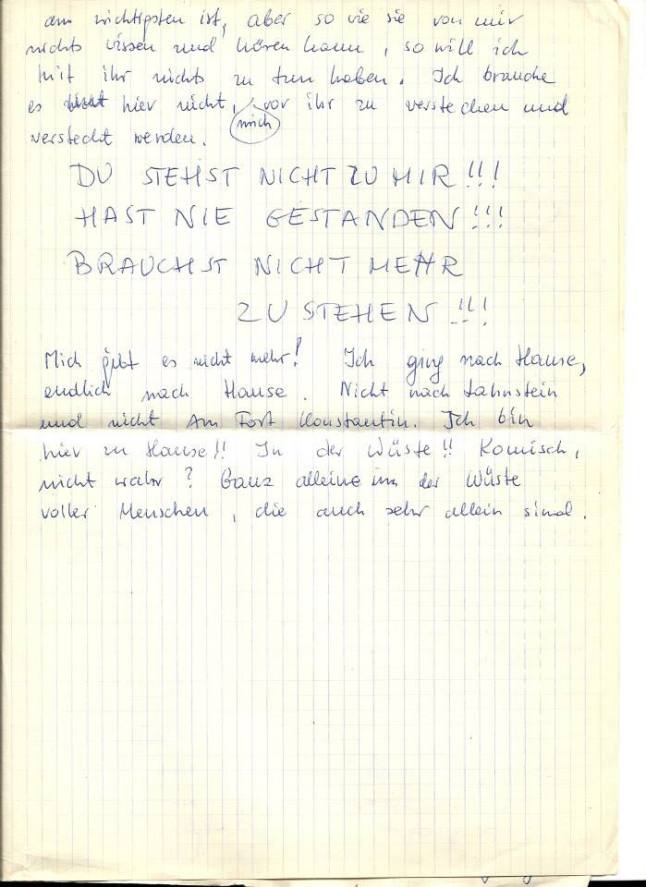 am wichtigsten ist, aber so wie sie von mir
nichts wissen und hören kann, so will ich
mit ihr nichts zu tun haben. Ich brauche
es hier nicht, mich vor ihr zu verstechen und
versteckt werden.
DU STEHST NICHT ZU MIR!!!
HAST NIE GESTANDEN!!!
BRAUCHST NICHT MEHR
ZU STEHEN!!!
Mich gibt es nicht mehr! Ich ging nach Hause,
endlich nach Hause. Nicht nach Lahnstein
und nicht Am Fort Konstantin. Ich bin
hier zu Hause!! In der Wüste!! Komisch,
nicht wahr? Ganz alleine in der Wüste
voller Menschen, die auch sehr allein sind.